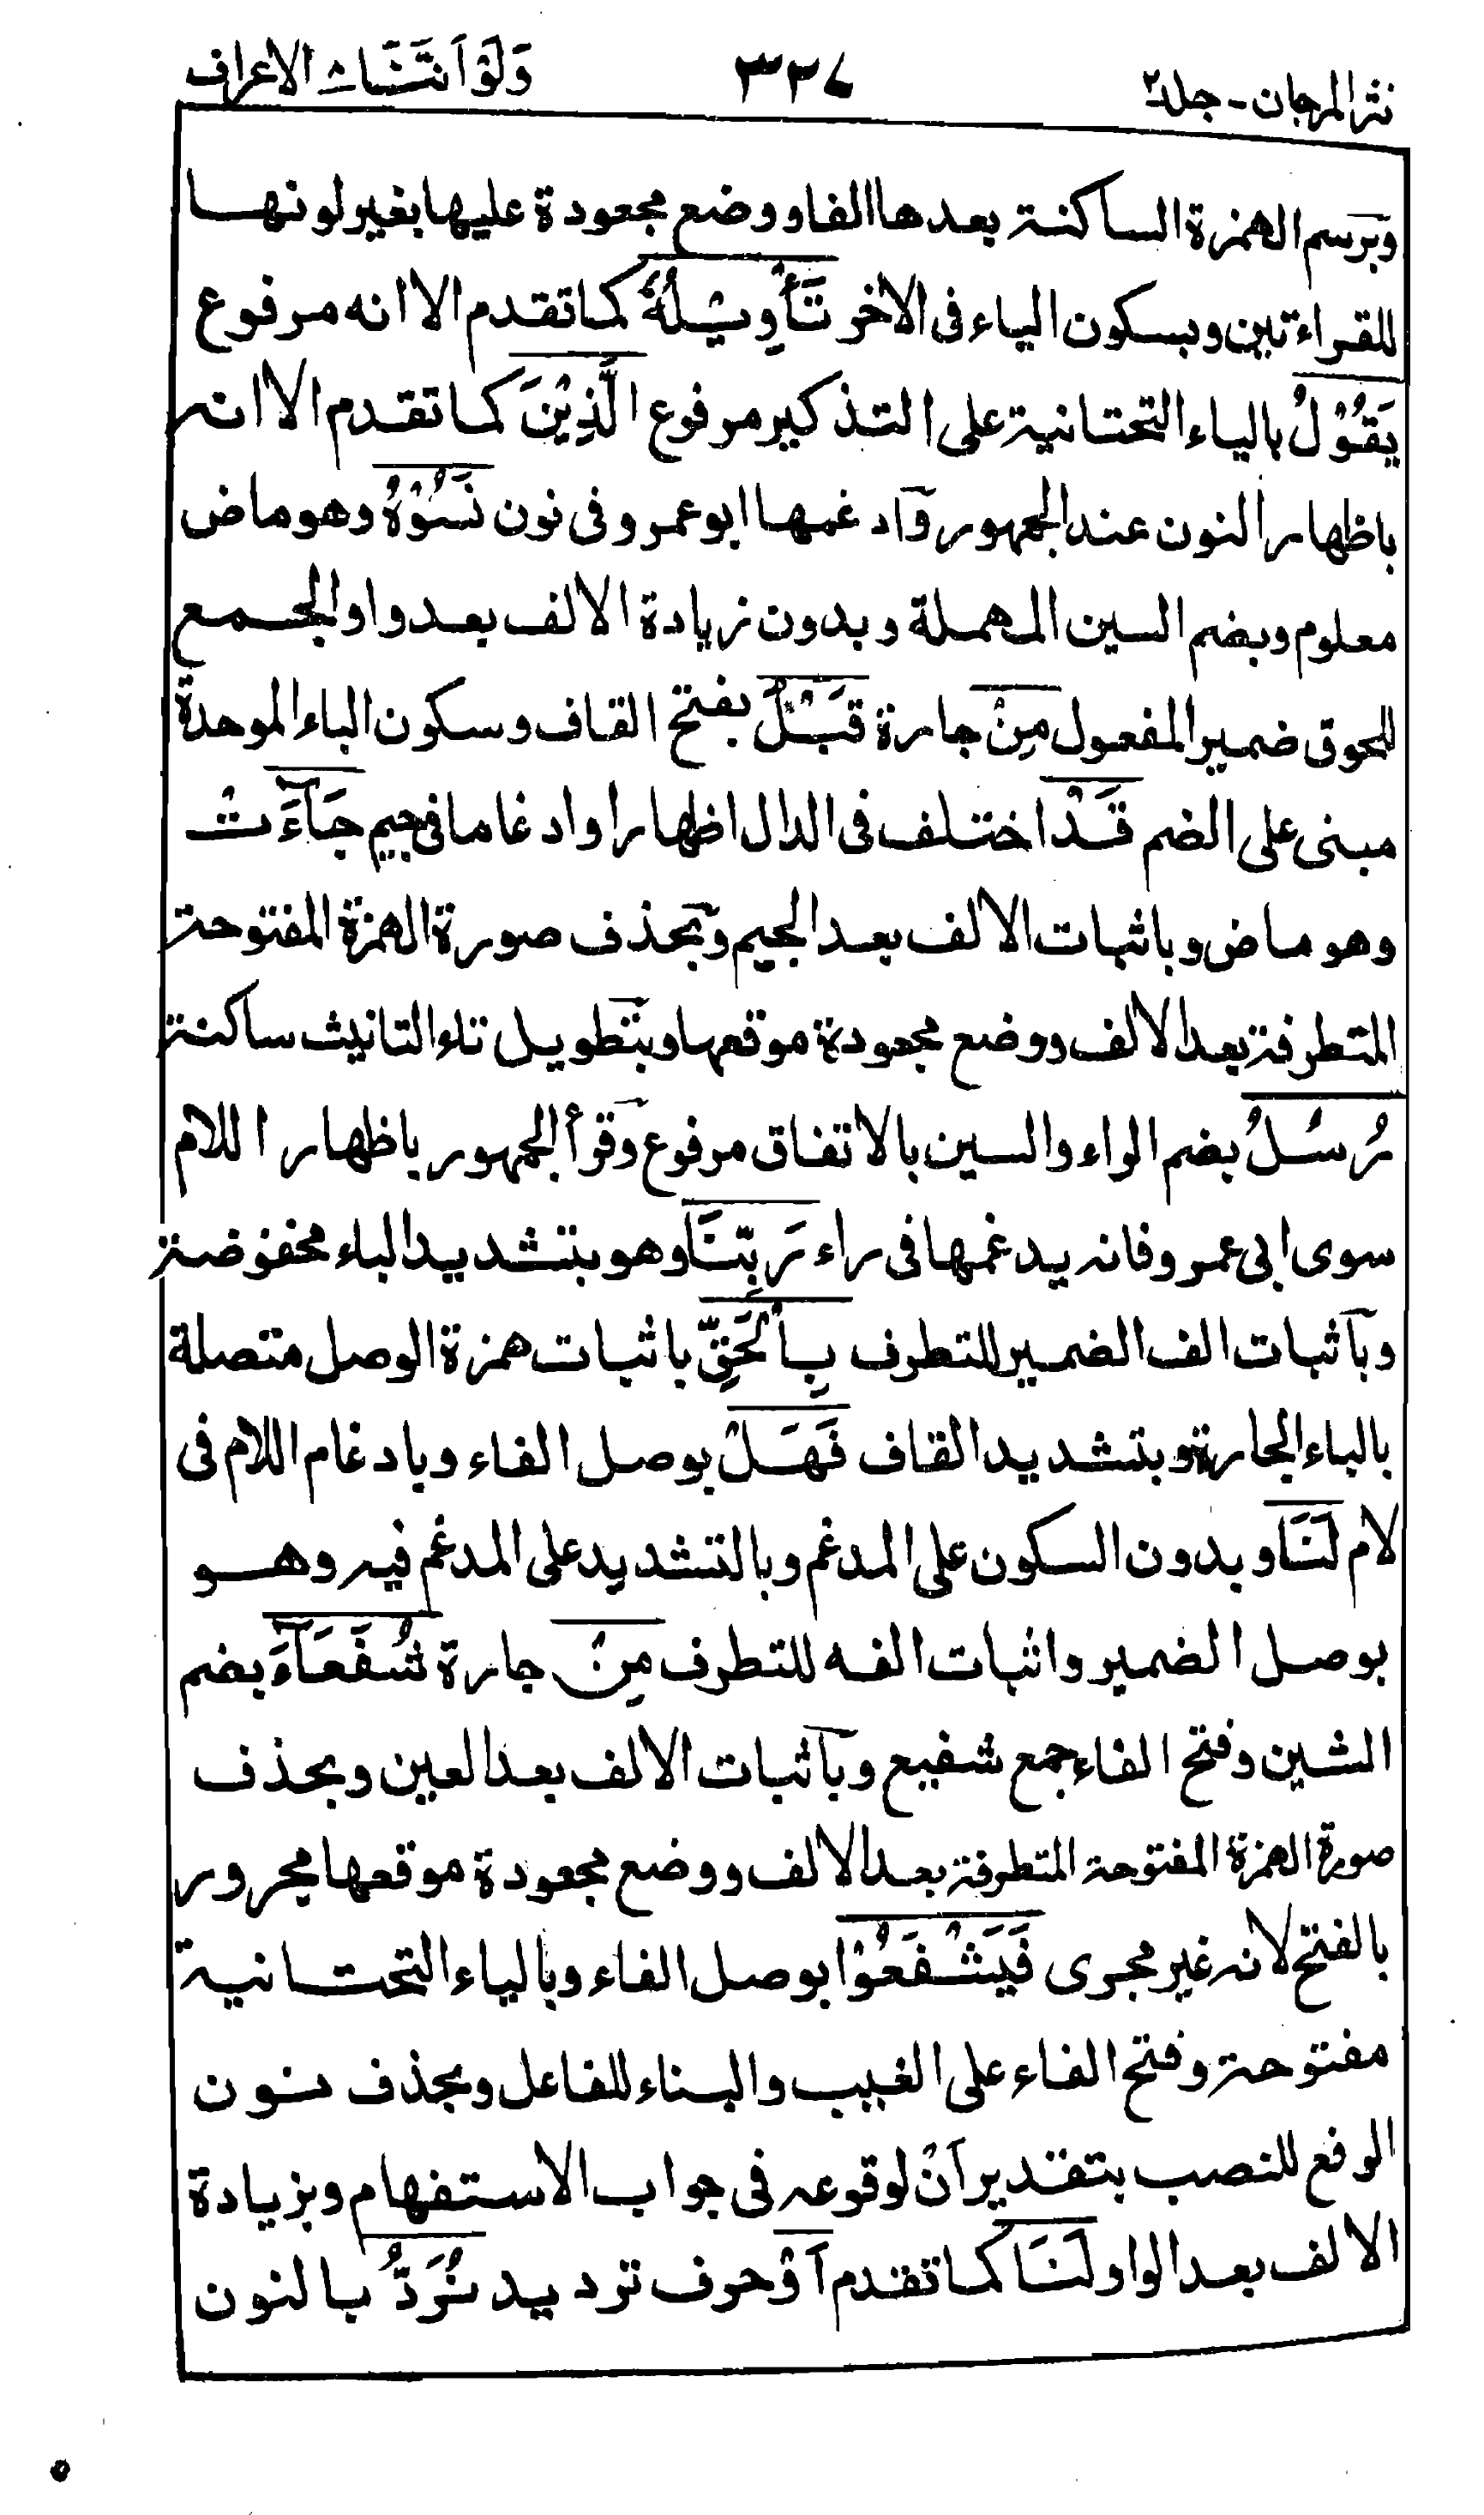 نثر المرجان - جلد ٢
٣٣٤
وَلَوْ اَنَّنَا - الاعراف
وبرسم الهمزة الساكنة بعدها الفا ووضع مجعودة عليها بغير لونها
للقراءتين وبسكون الياء فى الاخر تَأْوِيْلُهٗ كما تقدم الا انه مرفوع
يَقُوْلُ بالياء التحتانية على التذكير مرفوع الَّذِيْنَ كما تقدم الا انه
باظهار النون عند الجمهور وادغمها ابو عمرو فى نون نَسُوْهُ وهو ماض
معلوم وبضم السين المهملة وبدون زيادة الالف بعد واو الجمع
للحوق ضمير المفعول مِنْ جارة قَبْلُ بفتح القاف وسكون الباء الموحدة
مبنى على الضم قَدْ اختلف فى الدال اظهارا وادغاما فى جيم جَآءَتْ
وهو ماض وباثبات الالف بعد الجيم وبحذف صورة الهمزة المفتوحة
المتطرفة بعد الالف ووضع مجعودة موقعها وبتطويل تاء التانيث ساكنة
رُسُلُ بضم الراء والسين بالاتفاق مرفوع وقرأ الجمهور باظهار اللام
سوى ابى عمرو فانه يدغمها فى راء رَبِّنَا وهو بتشديد الباء مخفوضة
وباثبات الف الضمير للتطرف بِالْحَقِّ باثبات همزة الوصل متصلة
بالباء الجارة وبتشديد القاف فَهَلْ بوصل الفاء وبادغام اللام فى
لام لَنَا وبدون السكون على المدغم وبالتشديد على المدغم فيه وهو
بوصل الضمير واثبات الفه للتطرف مِنْ جارة شُفَعَآءَ بضم
الشين وفتح الفاء جمع شفيع وباثبات الالف بعد العين وبحذف
صورة الهمزة المفتوحة المتطرفة بعد الالف ووضع مجعودة موقعها مجرور
بالفتح لانه غير مجرى فَيَشْفَعُوْا بوصل الفاء وبالياء التحتانية
مفتوحة وفتح الفاء على الغيب والبناء للفاعل وبحذف نون
الرفع للنصب بتقدير اَنْ لوقوعه فى جواب الاستفهام وبزيادة
الالف بعد الواو لَنَا كما تقدم اَوْ حرف ترديد نُرَدُّ بالنون